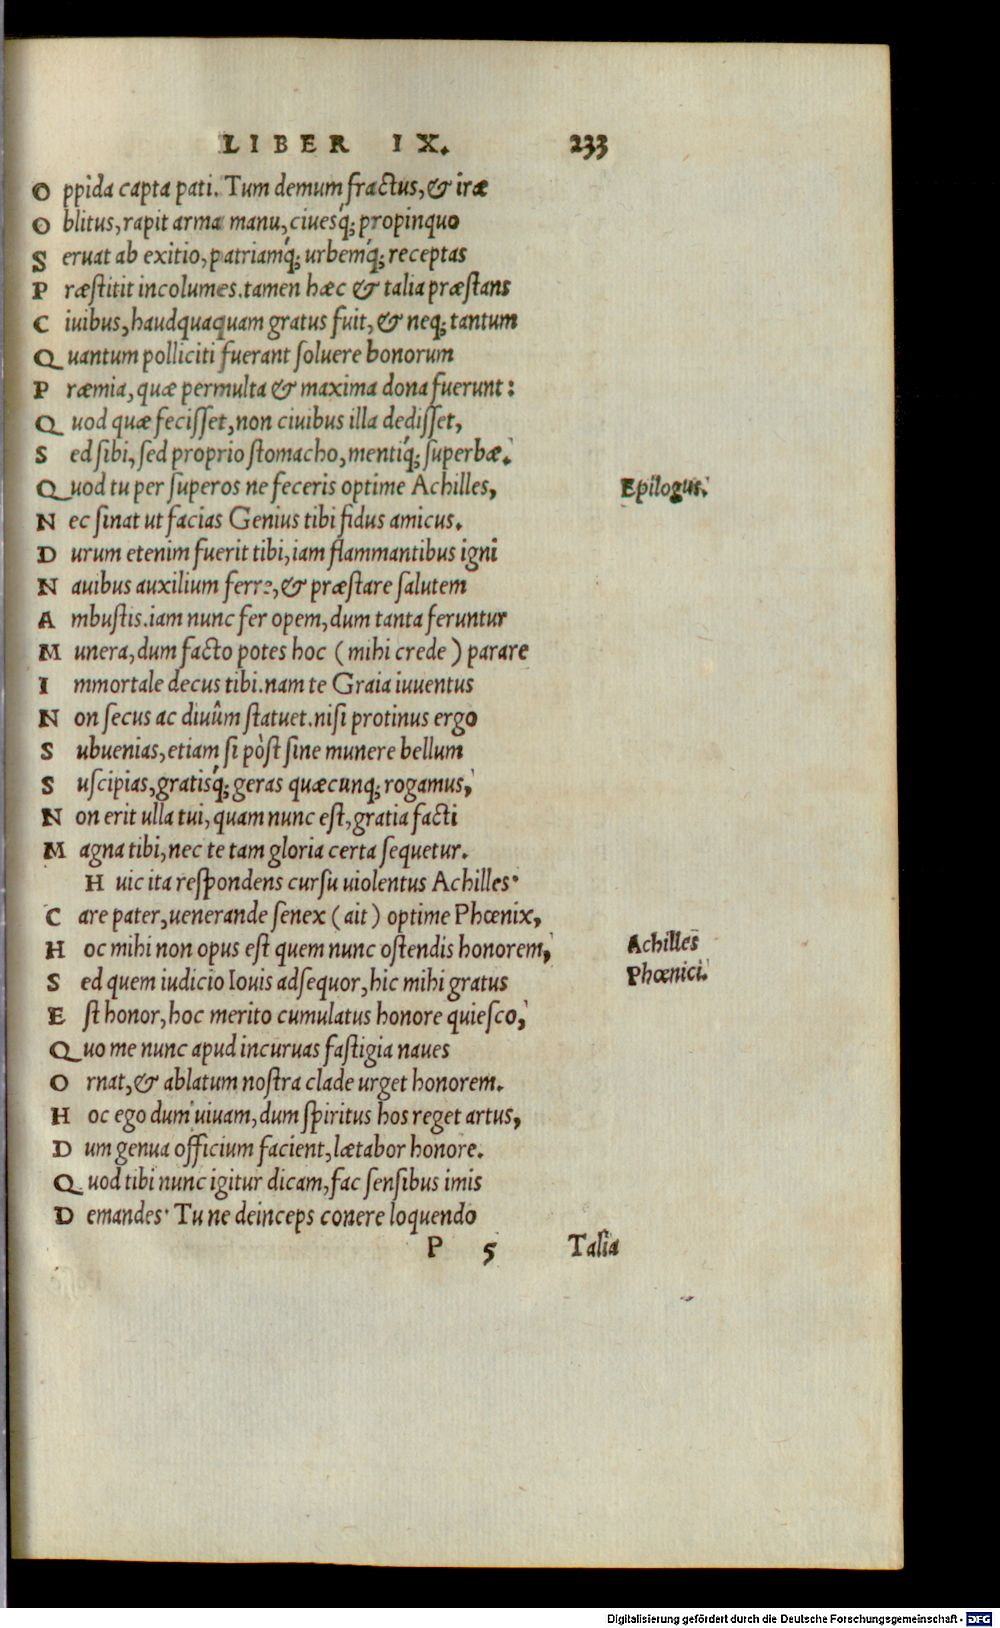 LIBER IX. 233
Oppida capta pati. Tum demum fractus, & iræ
Oblitus, rapit arma manu, ciuesq́; propinquo
Seruat ab exitio, patriamq́; urbemq́; receptas
Præstitit incolumes. tamen hæc & talia præstans
Ciuibus, haudquaquam gratus fuit, & neq; tantum
Quantum polliciti fuerant soluere bonorum
Præmia, quæ permulta & maxima dona fuerunt:
Quod quæ fecisset, non ciuibus illa dedisset,
Sed sibi, sed proprio stomacho, mentiq́; superbæ.
Quod tu per superos ne feceris optime Achilles,
Epilogus.
Nec sinat ut facias Genius tibi fidus amicus.
Durum etenim fuerit tibi, iam flammantibus igni
Nauibus auxilium ferre, & præstare salutem
Ambustis. iam nunc fer opem, dum tanta feruntur
Munera, dum facto potes hoc (mihi crede) parare
Immortale decus tibi. nam te Graia iuuentus
Non secus ac diuûm statuet. nisi protinus ergo
Subuenias, etiam si pòst sine munere bellum
Suscipias, gratisq́; geras quæcunq; rogamus,
Non erit ulla tui, quam nunc est, gratia facti
Magna tibi, nec te tam gloria certa sequetur.
Huic ita respondens cursu uiolentus Achilles.
Care pater, uenerande senex (ait) optime Phœnix,
Hoc mihi non opus est quem nunc ostendis honorem,
Achilles
Sed quem iudicio Iouis adsequor, hic mihi gratus
Phœnici.
Est honor, hoc merito cumulatus honore quiesco,
Quo me nunc apud incuruas fastigia naues
Ornat, & ablatum nostra clade urget honorem.
Hoc ego dum uiuam, dum spiritus hos reget artus,
Dum genua officium facient, lætabor honore.
Quod tibi nunc igitur dicam, fac sensibus imis
Demandes. Tu ne deinceps conere loquendo
P 5 Talia
Digitalisierung gefördert durch die Deutsche Forschungsgemeinschaft - DFG